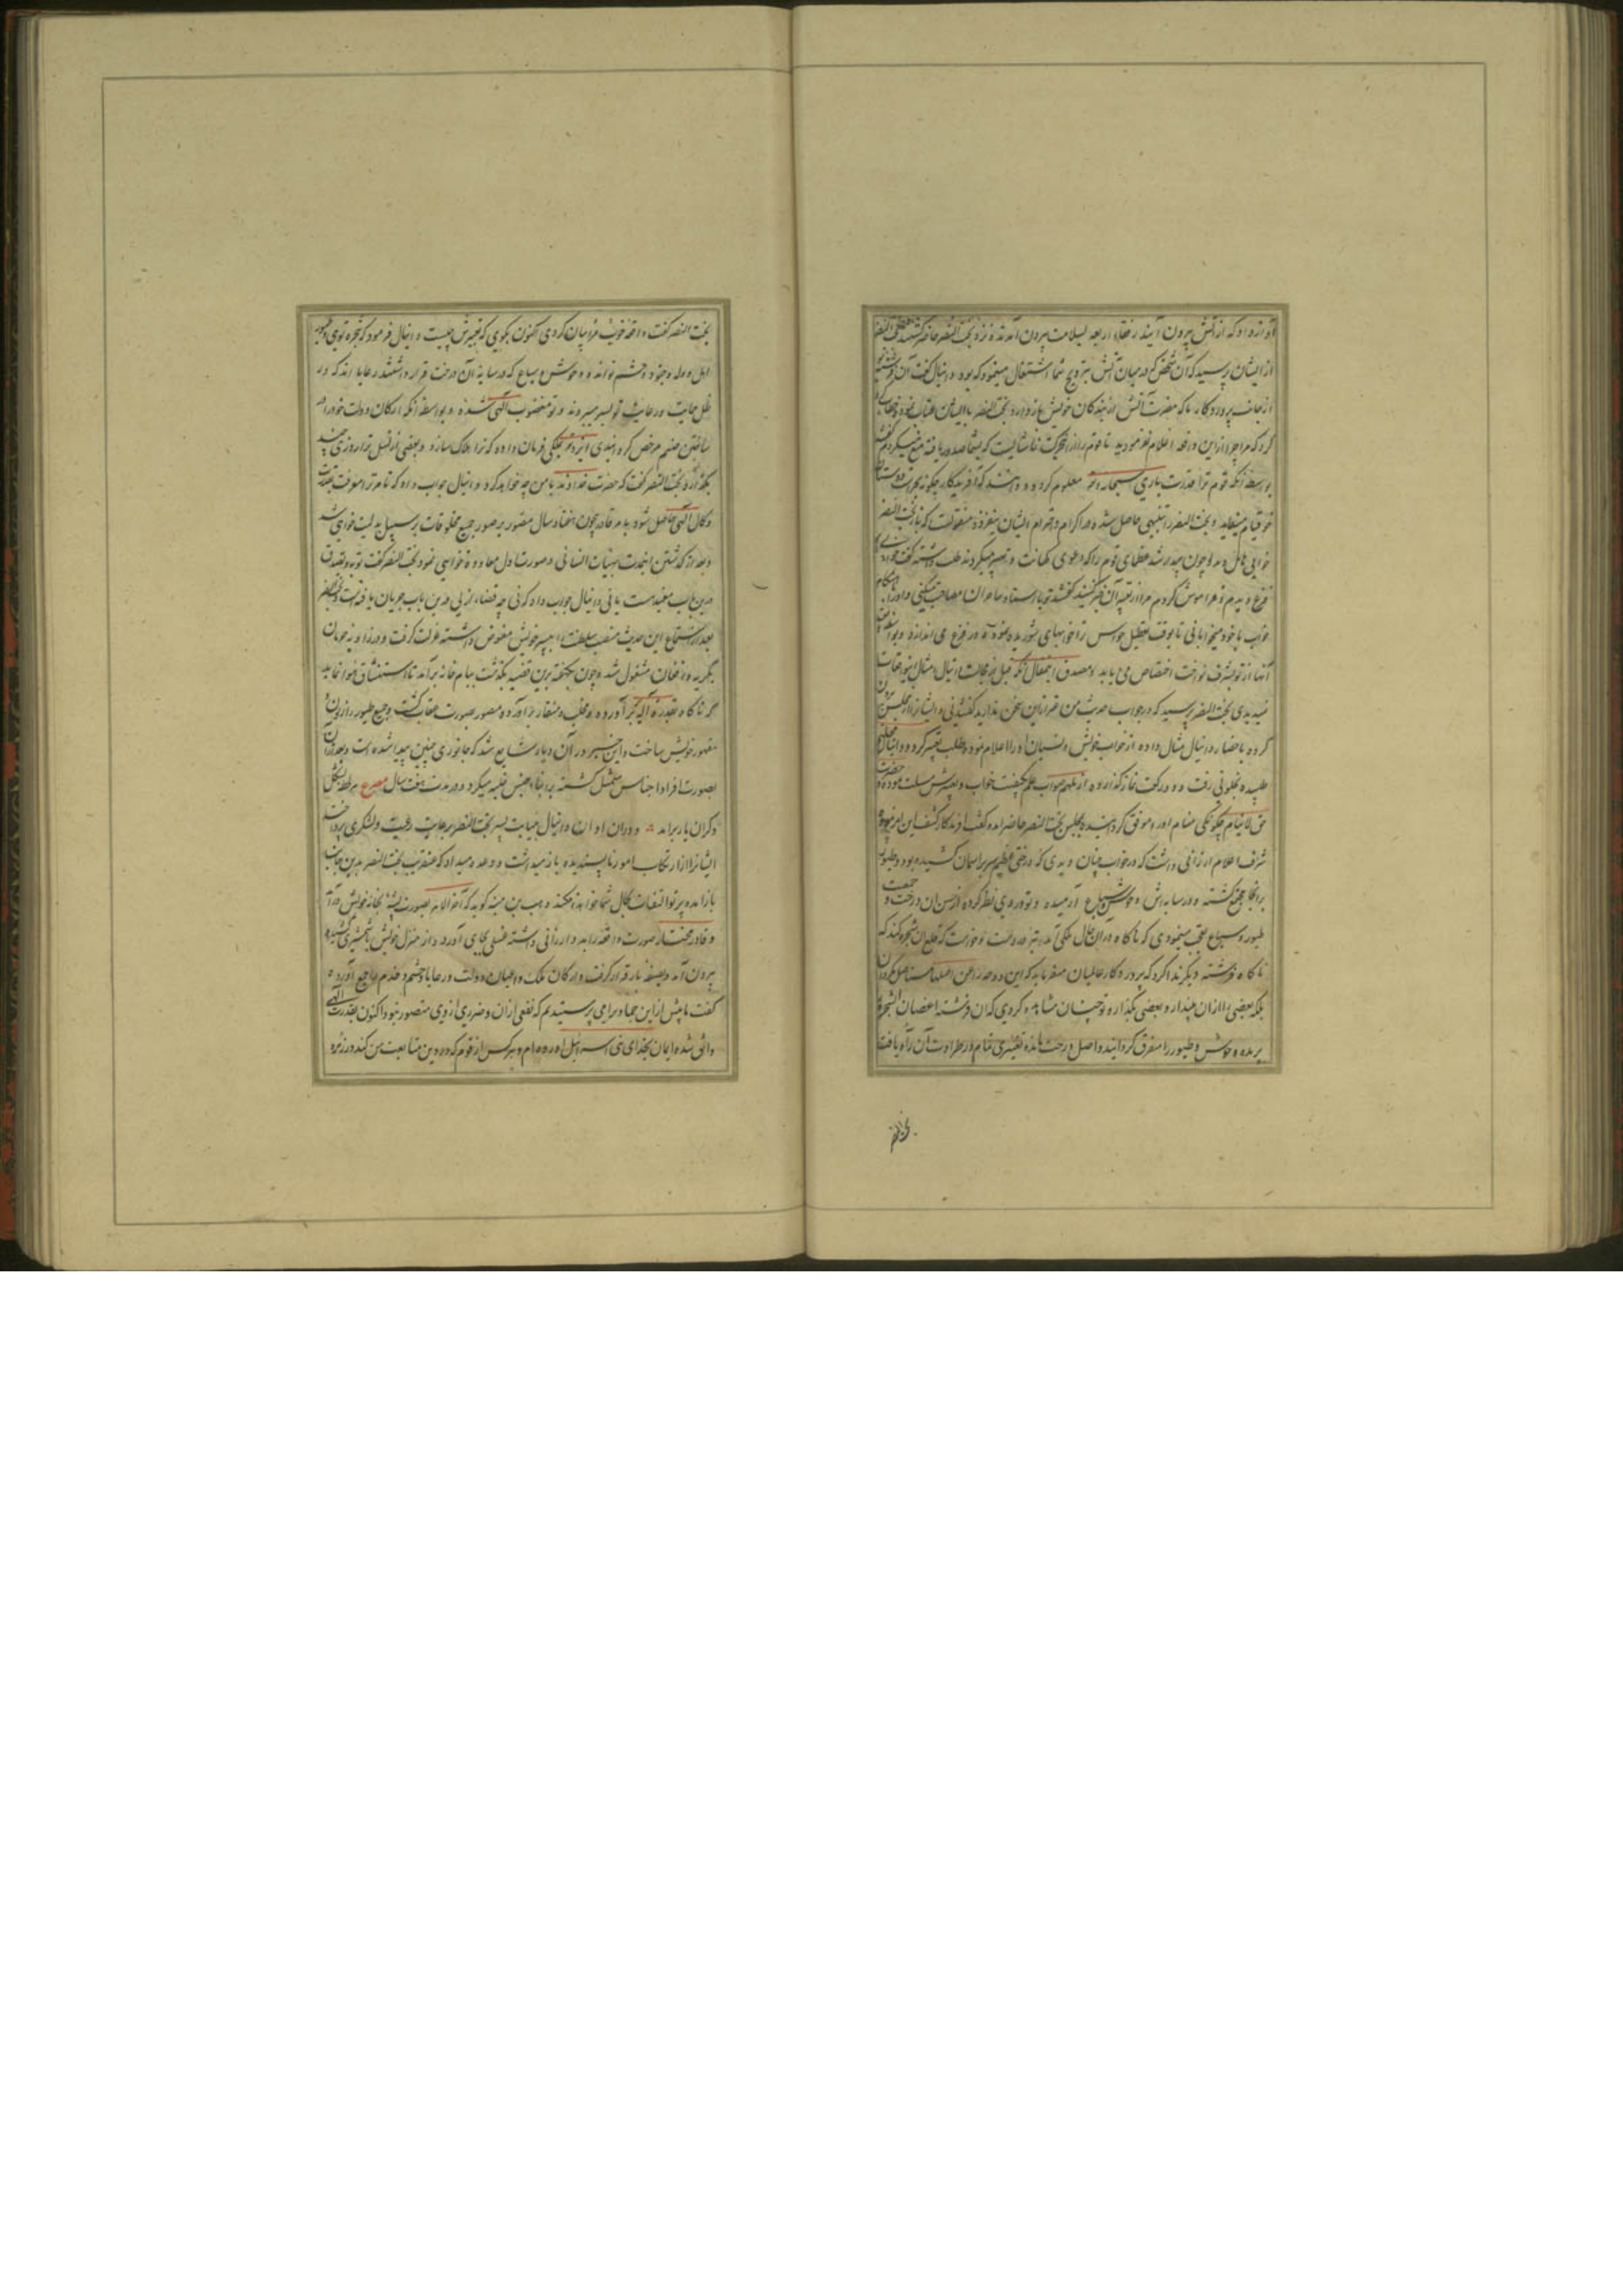 آواز داد که از آتش بیرون آیند رفقاء اربعه بسلامت بیرون آمدند و نزد بخت النصر حاضر کشتند بخت النصر
از ایشان پرسید که آن شخص که در میان آتش بترویح شما اشتغال مینمود که بود دانیال کفت آن فرشته بود
از جانب پروردکار تا که مضرت آتش از بندکان خویش باز دارد بخت النصر با ایشان عتاب
کرد که مرا چرا ازین واقعه اعلام نفرمودید تا قوم را از حرکت ناشایست که بشما صدور یافته منع میکردم کفتند
بواسطه آنکه قوم ترا قدرت باری سبحانه و تعالی معلوم کردد و دانند که آفریدکار چکونه بحراست دوستان
خود قیام مینماید و بخت النصر را تنبیهی حاصل شده در اکرام و احترام ایشان بیفزود منقولست که بخت النصر
خوابی هایل دید و چون بیدار شد عظمای قوم را که دعوی کهانت و تعبیر میکردند طلب داشته کفت خوابی
دیدم و فراموش کردم مرا از تعبیر آن خبر کنید کفتند تو با استاد ساحران مصاحبت میکنی و او را هنکام
خواب با خود میخوابانی تا بوقت تعطیل حواس ترا خوابهای شوریده نموده در فزع می اندازد و بواسطه
آنها از تو بشرف نواخت اختصاص می یابد و مصدق این مقال آنکه قبل از مجالست دانیال امثال این واقعات
نمیدیدی بخت النصر پرسید که در جواب حدیث من غیر ازین سخن ندارید کفتند نی و ایشان را از مجلس بیرون
کرده باحضار دانیال مثال داده از خواب خویش و نسیان او را اعلام نمود و طلب تعبیر کرد و دانیال مهلت
طلبیده بخلوتی رفت و دو رکعت نماز کذارده از ملهم صواب علم کیفیت خواب و تعبیرش مسئلت نمود و حضرت
حق لاینام چکونکی منام او را موقوف کردانیده بمجلس بخت النصر حاضر آمده کفت آفریدکار کشف این امر نموده
شرف اعلام ارزانی داشت که در خواب چنان دیدی که درختی عظیم سر بر آسمان کشیده بود و طیور
بر آنجا مجتمع کشته و در سایه اش وحوش و سباع آرمیده و تو در وی نظر کرده از حسن آن درخت و جمعیت
طیور و سباع تعجب مینمودی که ناکاه در آن حال ملکی آمد تبر در دست و خواست که قلع آن شجره کند که
ناکاه فرشته دیکر ندا کرد که پروردکار عالمیان میفرماید که این دوحه را من اصلها مستاصل مکردان
بلکه بعضی را از آن بینداز و بعضی بکذار و تو چنان مشاهده کردی که آن فرشته اغصان شجره
بریده و وحوش و طیور را متفرق کردانید و اصل درخت مانده تغییری تمام در طراوت آن راه یافت
بخت النصر
بخت النصر کفت واقعه خویش مرا بیان کردی اکنون بکوی که تعبیرش چیست دانیال فرمود که شجره تویی و طیور
اهل و ولد و جنود و حشم تواند و وحوش و سباع که در سایه آن درخت قرار داشتند رعایا اند که در
ظل حمایت و رعایت تو بسر میبرند و تو مغضوب آلهی شده و بواسطه آنکه ارکان دولت خود را در
ساختن صنم مرخص کردانیدی ایزد ملکی فرمان داده که ترا هلاک سازد و بعضی از قبل ترا روزی چند
بکذارد بخت النصر کفت که حضرت خداوند با من چه خواهد کرد دانیال جواب داد که تا مر ترا معرفت بقدرت
و کمال آلهی حاصل شود بامر قادر بیچون هفتاد سال مصور بصور جمیع مخلوقات بر سبیل بدلیت خواهی شد
و بعد از کذشتن این مدت بهیات انسانی و صورت اول معاودت خواهی نمود بخت النصر کفت توبه و تصدق
درین باب مفیدست یا نی دانیال جواب داد که نی چه قضاء ازلی درین باب جریان یافته است و بخت النصر
بعد از استماع این حدیث منصب سلطنت به پسر خویش مفوض داشته عزلت کرفت و در زاویه حرمان
بکریه و فغان مشغول شد و چون هفته برین قضیه بکذشت ببام خانه برآمد تا استنشاق هوا نماید
که ناکاه بقدرت آله پر برآورده و مخلب و منقار برآورد و مصور بصورت عقاب کشت و جمیع طیور را زبون
مقهور خویش ساخت و این خبر در آن دیار شایع شد که جانوری چنین پیدا شده است و بعد از آن
بصورت افراد اجناس متمثل کشته بر ابناء جنس غلبه میکرد و در مدت هفت سال مصرع هر لحظه بشکل
دکران یار برآمد و در آن اوان دانیال بنیابت پسر بخت النصر برعایت رعیت و لشکری پرداخته
ایشانرا از ارتکاب امور ناپسندیده باز میداشت و وعده میداد که عنقریب بخت النصر بدین جانب
باز آمده پرتو التفات بحال شما خواهد افکند وهب بن منبه کوید که آخر الامر بصورت پشه بخانه خویش درآمد
و قادر مختار صورت واقعه را بدو ارزانی داشته غسلی بجای آورد و از منزل خویش با شمشیری کشیده
بیرون آمد و بصفه بار قرار کرفت و ارکان ملک و اعیان دولت و رعایا و حشم و خدم را جمع آورده
کفت ما پیش ازین جمادی را می پرستیدیم که نفعی از آن و ضرری از وی متصور نبود اکنون بقدرت الهی
واثق شده ایمان بخدای بنی اسرائیل آورده ام و هر کس از قوم که در دین متابعت من کند در زمره